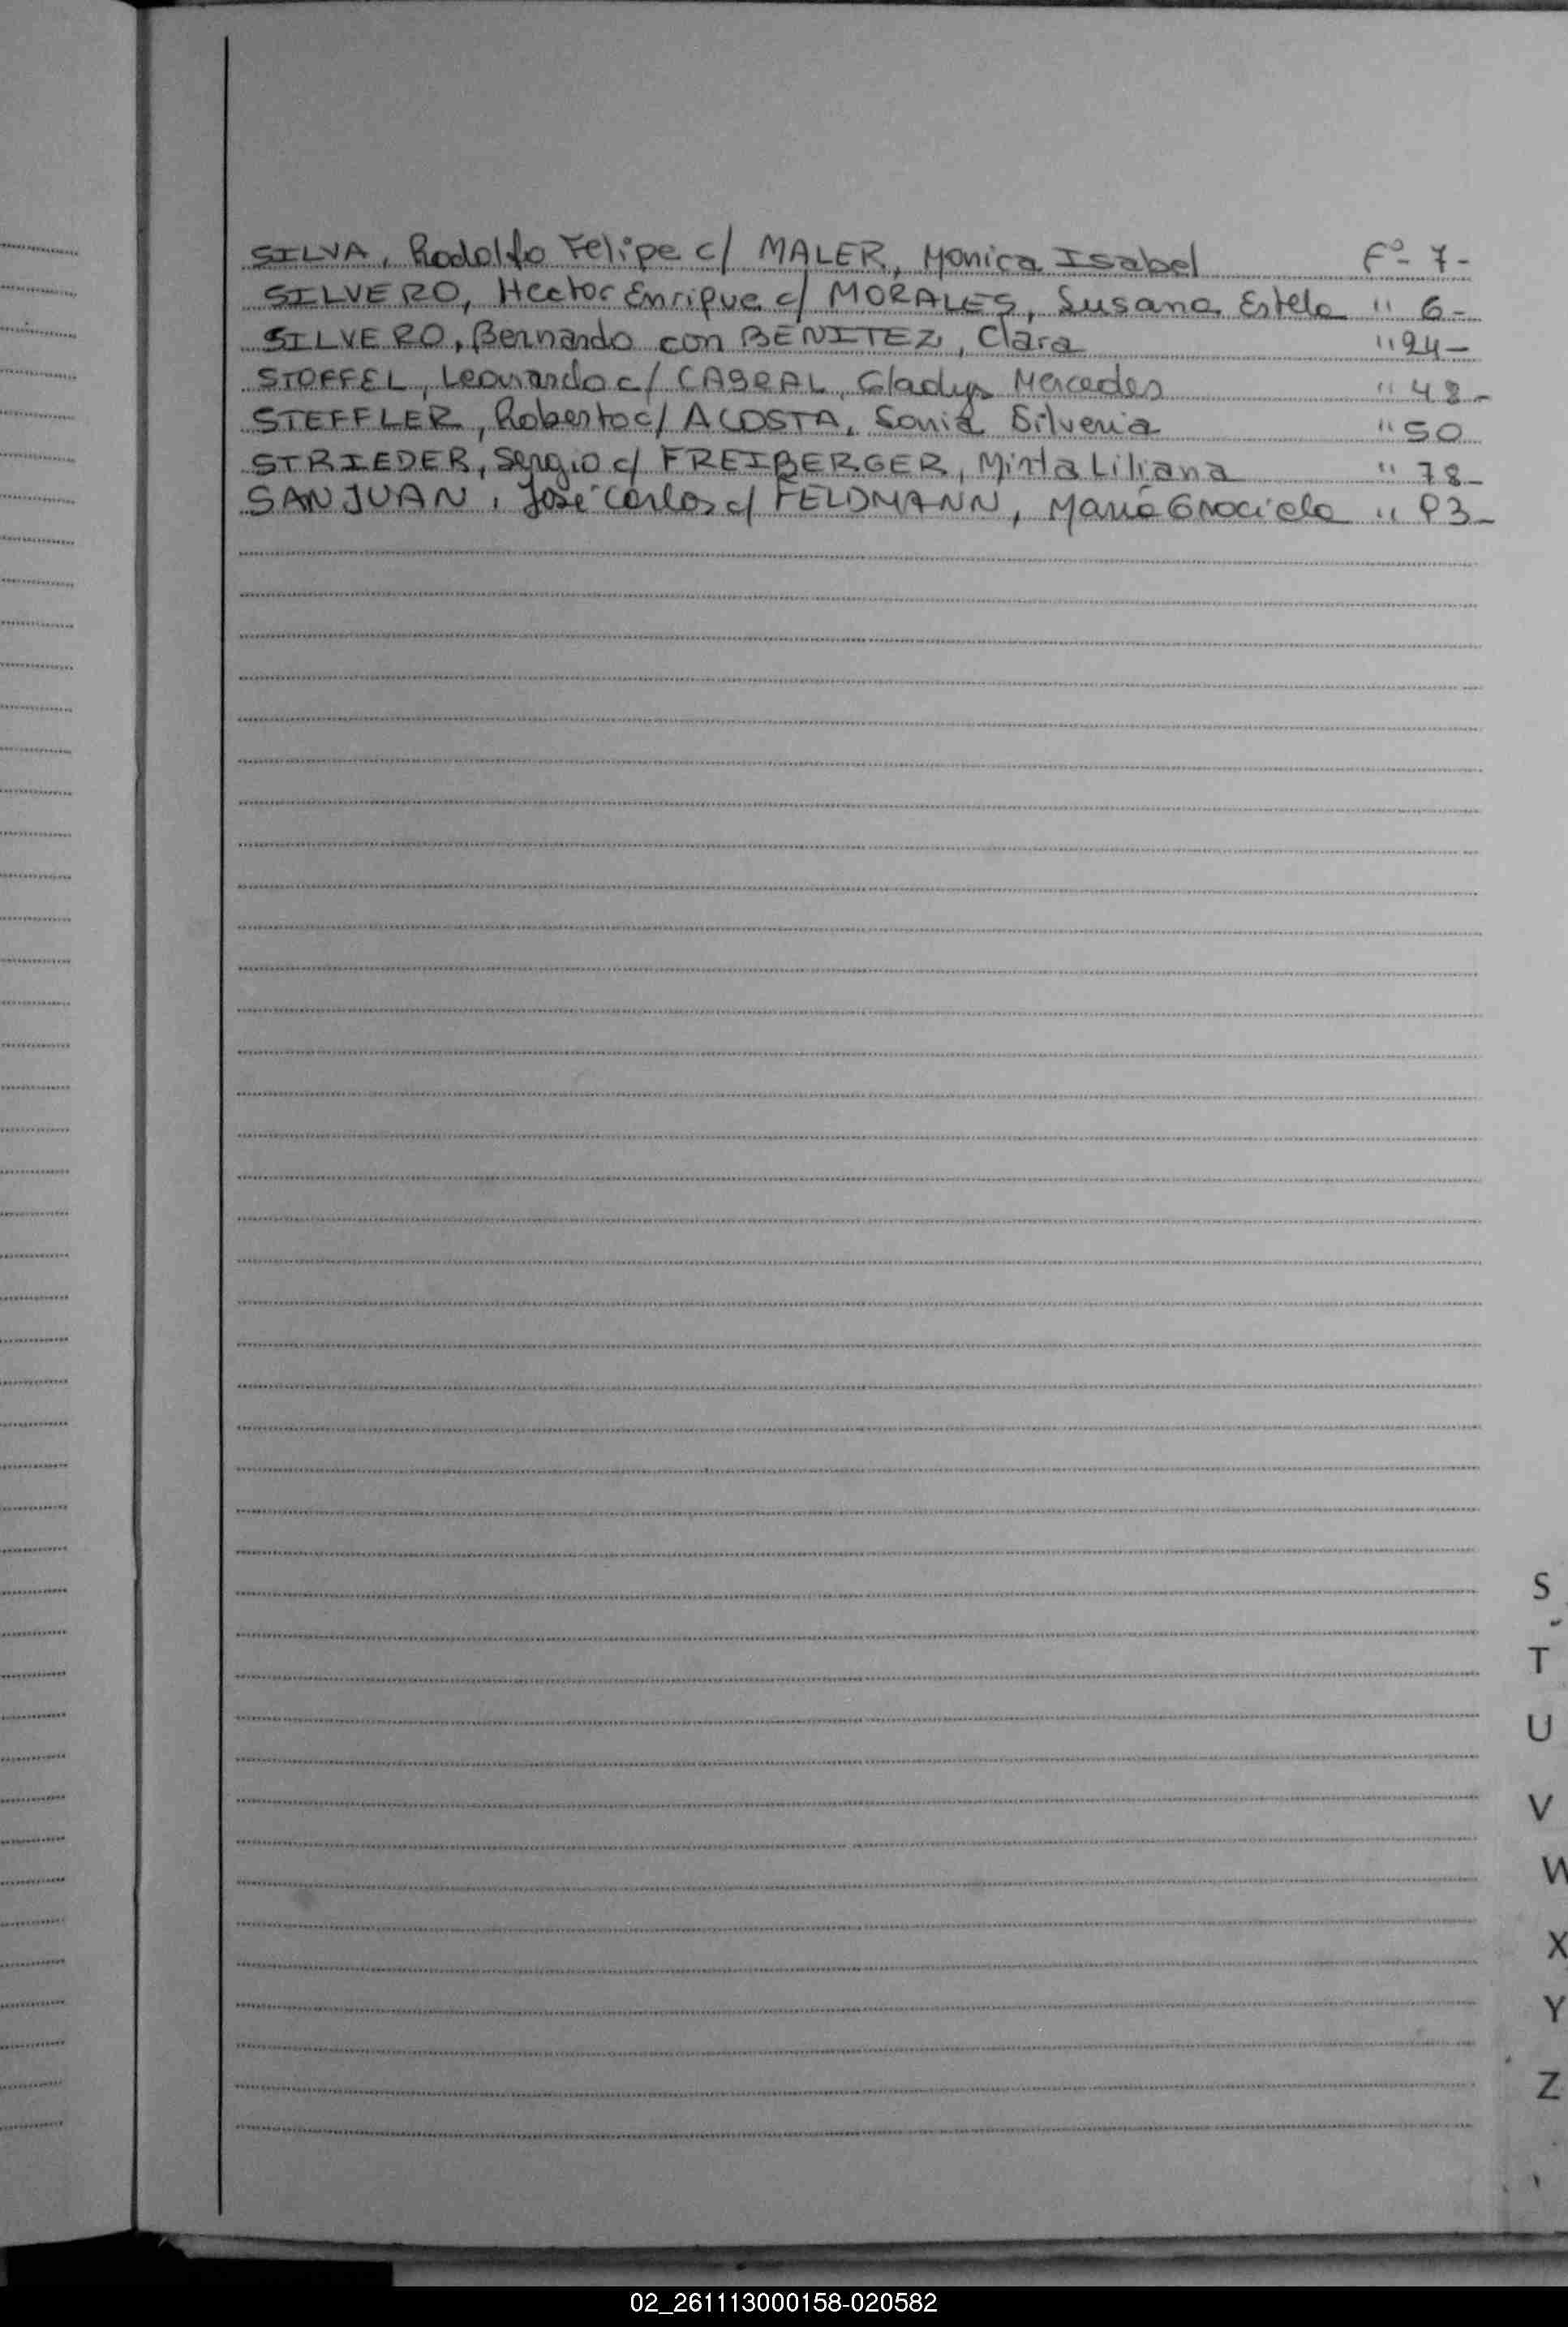 SILVA, Rodolfo Felipe c/ MALER, Monica Isabel Fº- 7-
SILVERO, Hector Enrique c/ MORALES, Susana Estela " 6-
SILVERO, Bernardo con BENITEZ, Clara " 24-
STOFFEL, Leonardo c/ CABRAL, Gladys Mercedes " 48-
STEFFLER, Roberto c/ ACOSTA, Sonia Silveria " 50
STRIEDER, Sergio c/ FREIBERGER, Mirta Liliana " 78-
SANJUAN, José Carlos c/ FELDMANN, María Graciela " 93-
S
T
U
V
W
X
Y
Z
02_261113000158-020582